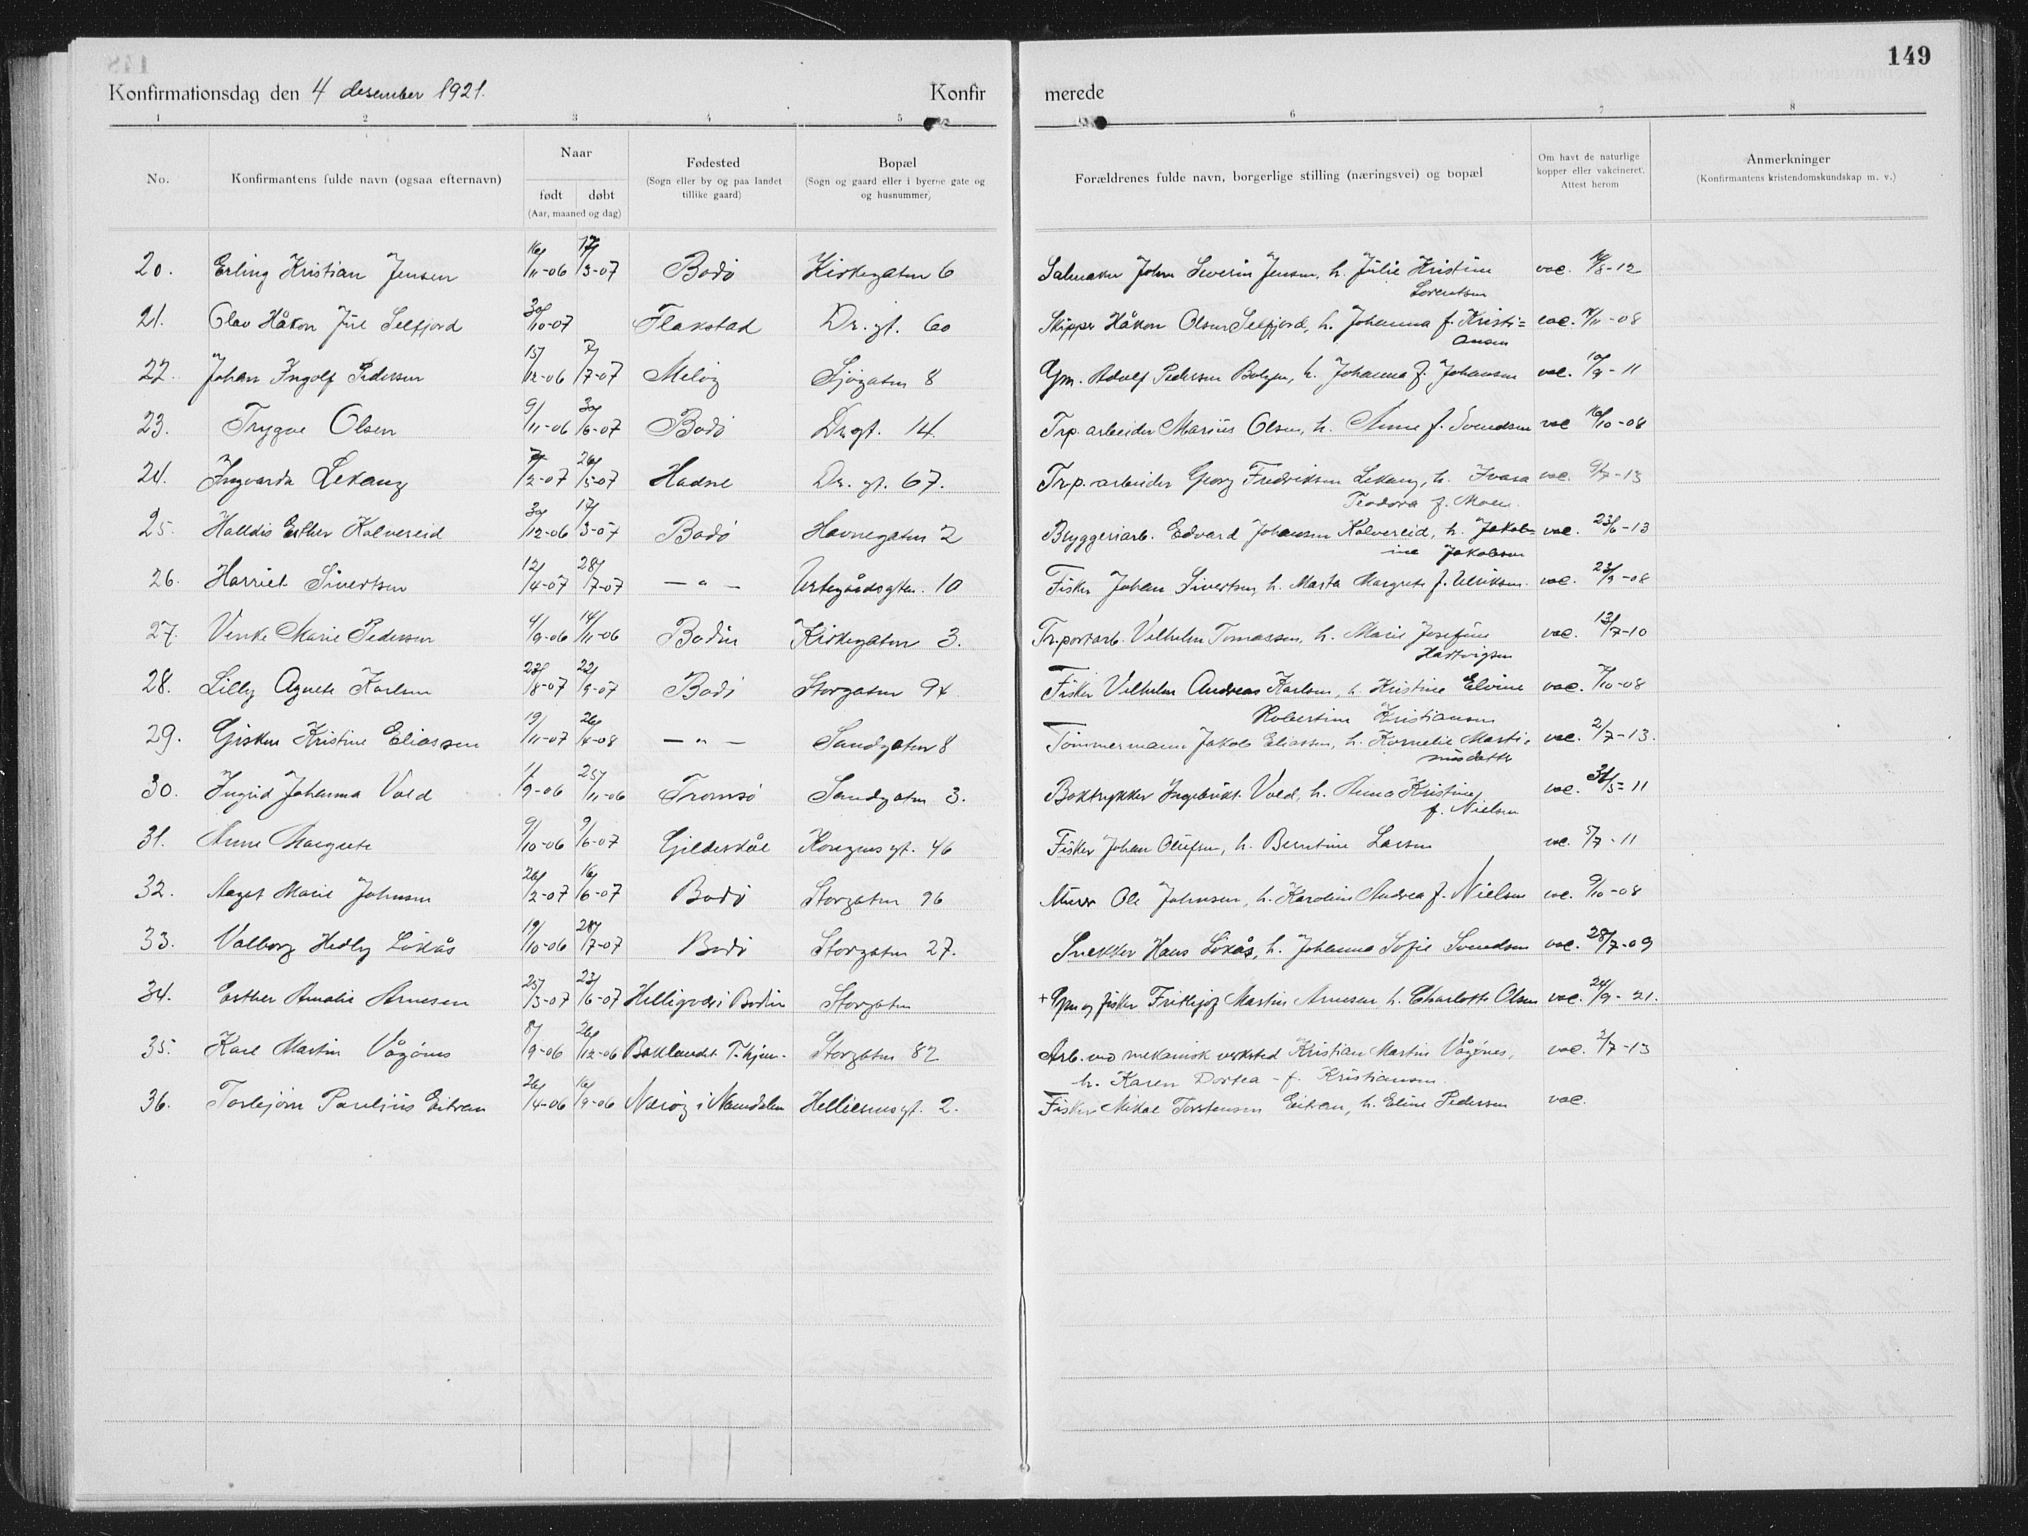 149
Konfirmationsdag den 4 desember 1921.
Konfir
merede
1 2 3 4 5 6 7 8
No.
Konfirmantens fulde navn (ogsaa efternavn)
Naar
født døbt
(Aar, maaned og dag)
Fødested
(Sogn eller by og paa landet
tillike gaard)
Bopæl
(Sogn og gaard eller i byerne gate og
og husnummer)
Forældrenes fulde navn, borgerlige stilling (næringsvei) og bopæl
Om havt de naturlige
kopper eller vakcineret.
Attest herom
Anmerkninger
(Konfirmantens kristendomskundskap m. v.)
20. Erling Kristian Jensen 16/11-06 17/3-07 Bodö Kirkegaten 6 Salmaker John Severin Jensen, h. Julie Kristine vac. /8-12
Lorentsen
21. Olav Håkon Jül Selfjord 30/10-07 Flakstad Dr. gt. 60 Skipper Håkon Olsen Selfjord, h. Johanna f. Kristi= vac. /11-08
ansen
22. Johan Ingolf Pedersen 15/12-06 7/7-07 Melöy Sjögaten 8 Gm. Adolf Pedersen Bolgen, h. Johanna f. Johansen vac. 10/9-11
23. Trygve Olsen 9/11-06 30/6-07 Bodö Dr. gt. 14. Trp. arbeider Marius Olsen, h. Anne f. Svendsen vac 16/10-08
24. Ingvarda Lekang 7/2-07 26/5-07 Hadsel Dr. gt. 67. Trp. arbeider Georg Fredriksen Lekang, h. Ivara vac. 9/7-13
Teodora f. Moen
25. Halldis Esther Kolvereid 30/12-06 17/3-07 Bodö Havnegaten 2 Bryggeriarb. Edvard Johansen Kolvereid, h. Jakob= vac. 23/6-13
ine Jakobsen
26. Harriet Sivertsen 12/4-07 28/7-07 — " — Urtegårdsgten. 10 Fisker Johan Sivertsen, h. Marta Margrete f. Ulriksen. vac. 23/9-08
27. Venke Marie Pedersen 4/9-06 14/11-06 Bodin Kirkegaten 3. Tr.portarb. Vilhelm Tomassen, h. Marie Josefine vac. 13/7-10
Hartvigsen
28. Lilly Agnete Karlsen 23/8-07 22/9-07 Bodö Storgaten 94 Fisker Vilhelm Andreas Karlsen, h. Kristine Elvine vac. /10-08
Robertine Kristiansen
29. Gisken Kristine Eliassen 19/11-07 26/4-08 — " — Sandgaten 8 Tömmermann Jakob Eliassen, h. Kornelie Marti= vac. 2/7-13.
nusdatte
30. Ingrid Johanna Vold 1/9-06 25/11-06 Tromsö Sandgaten 3. Boktrykker Ingebrikt Vold, h. Anna Kristine vac. 31/5-11
f. Nielsen
31. Anne Margrete 9/10-06 9/6-07 Gildeskål Kongensgt. 46 Fisker Johan Olufsen, h. Berntine Larsen vac. 5/7-11
32. Aagot Marie Johnsen 26/2-07 16/6-07 Bodö Storgaten 96 Murer Ole Johnsen, h. Karoline Andrea f. Nielsen vac. 9/10-08
33. Valborg Hedly Lökås 19/10-06 28/7-07 Bodö Storgaten 27. Snekker Hans Lökås, h. Johanna Sofie Svendsen vac. 28/7-09
34. Esther Amalie Arnesen 25/3-07 23/6-07 Helligvær i Bodin Storgaten + Gm. og fisker Frithjof Martin Arnesen h. Charlotte Olsen vac. 24/9-21.
35. Karl Martin Vågönes 8/9-06 26/12-06 Storgaten 82 Arb. ved mekanisk verksted Kristian Martin Vågönes, vac. 2/7-13
h. Karen Dortea f. Kristiansen.
36. Torbjörn Paulius Eitran 26/4-06 16/9-06 Næröy i Namdalen Hellesensgt. 2. Fisker Mikal Torstensen Eitran, h. Eline Pedersen vac.